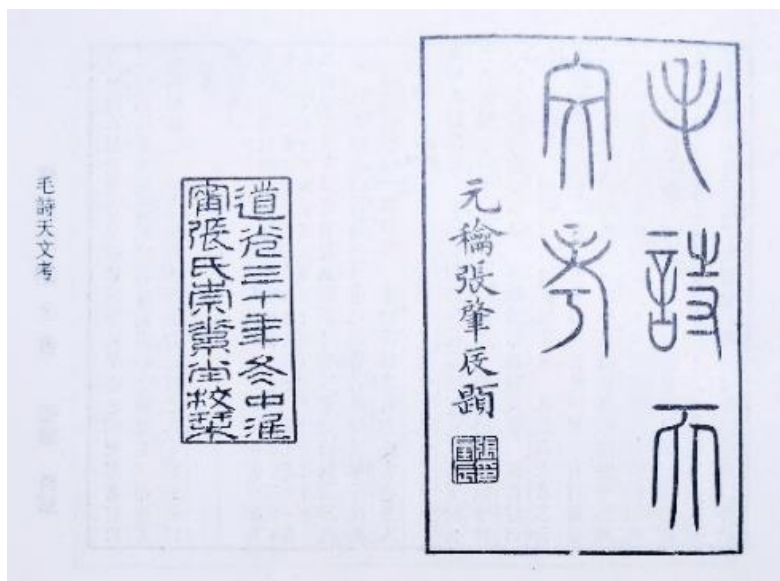 毛詩天
文考
元張肇辰題
道光三十年冬中
甯張氏崇素堂校栞
毛詩天文考